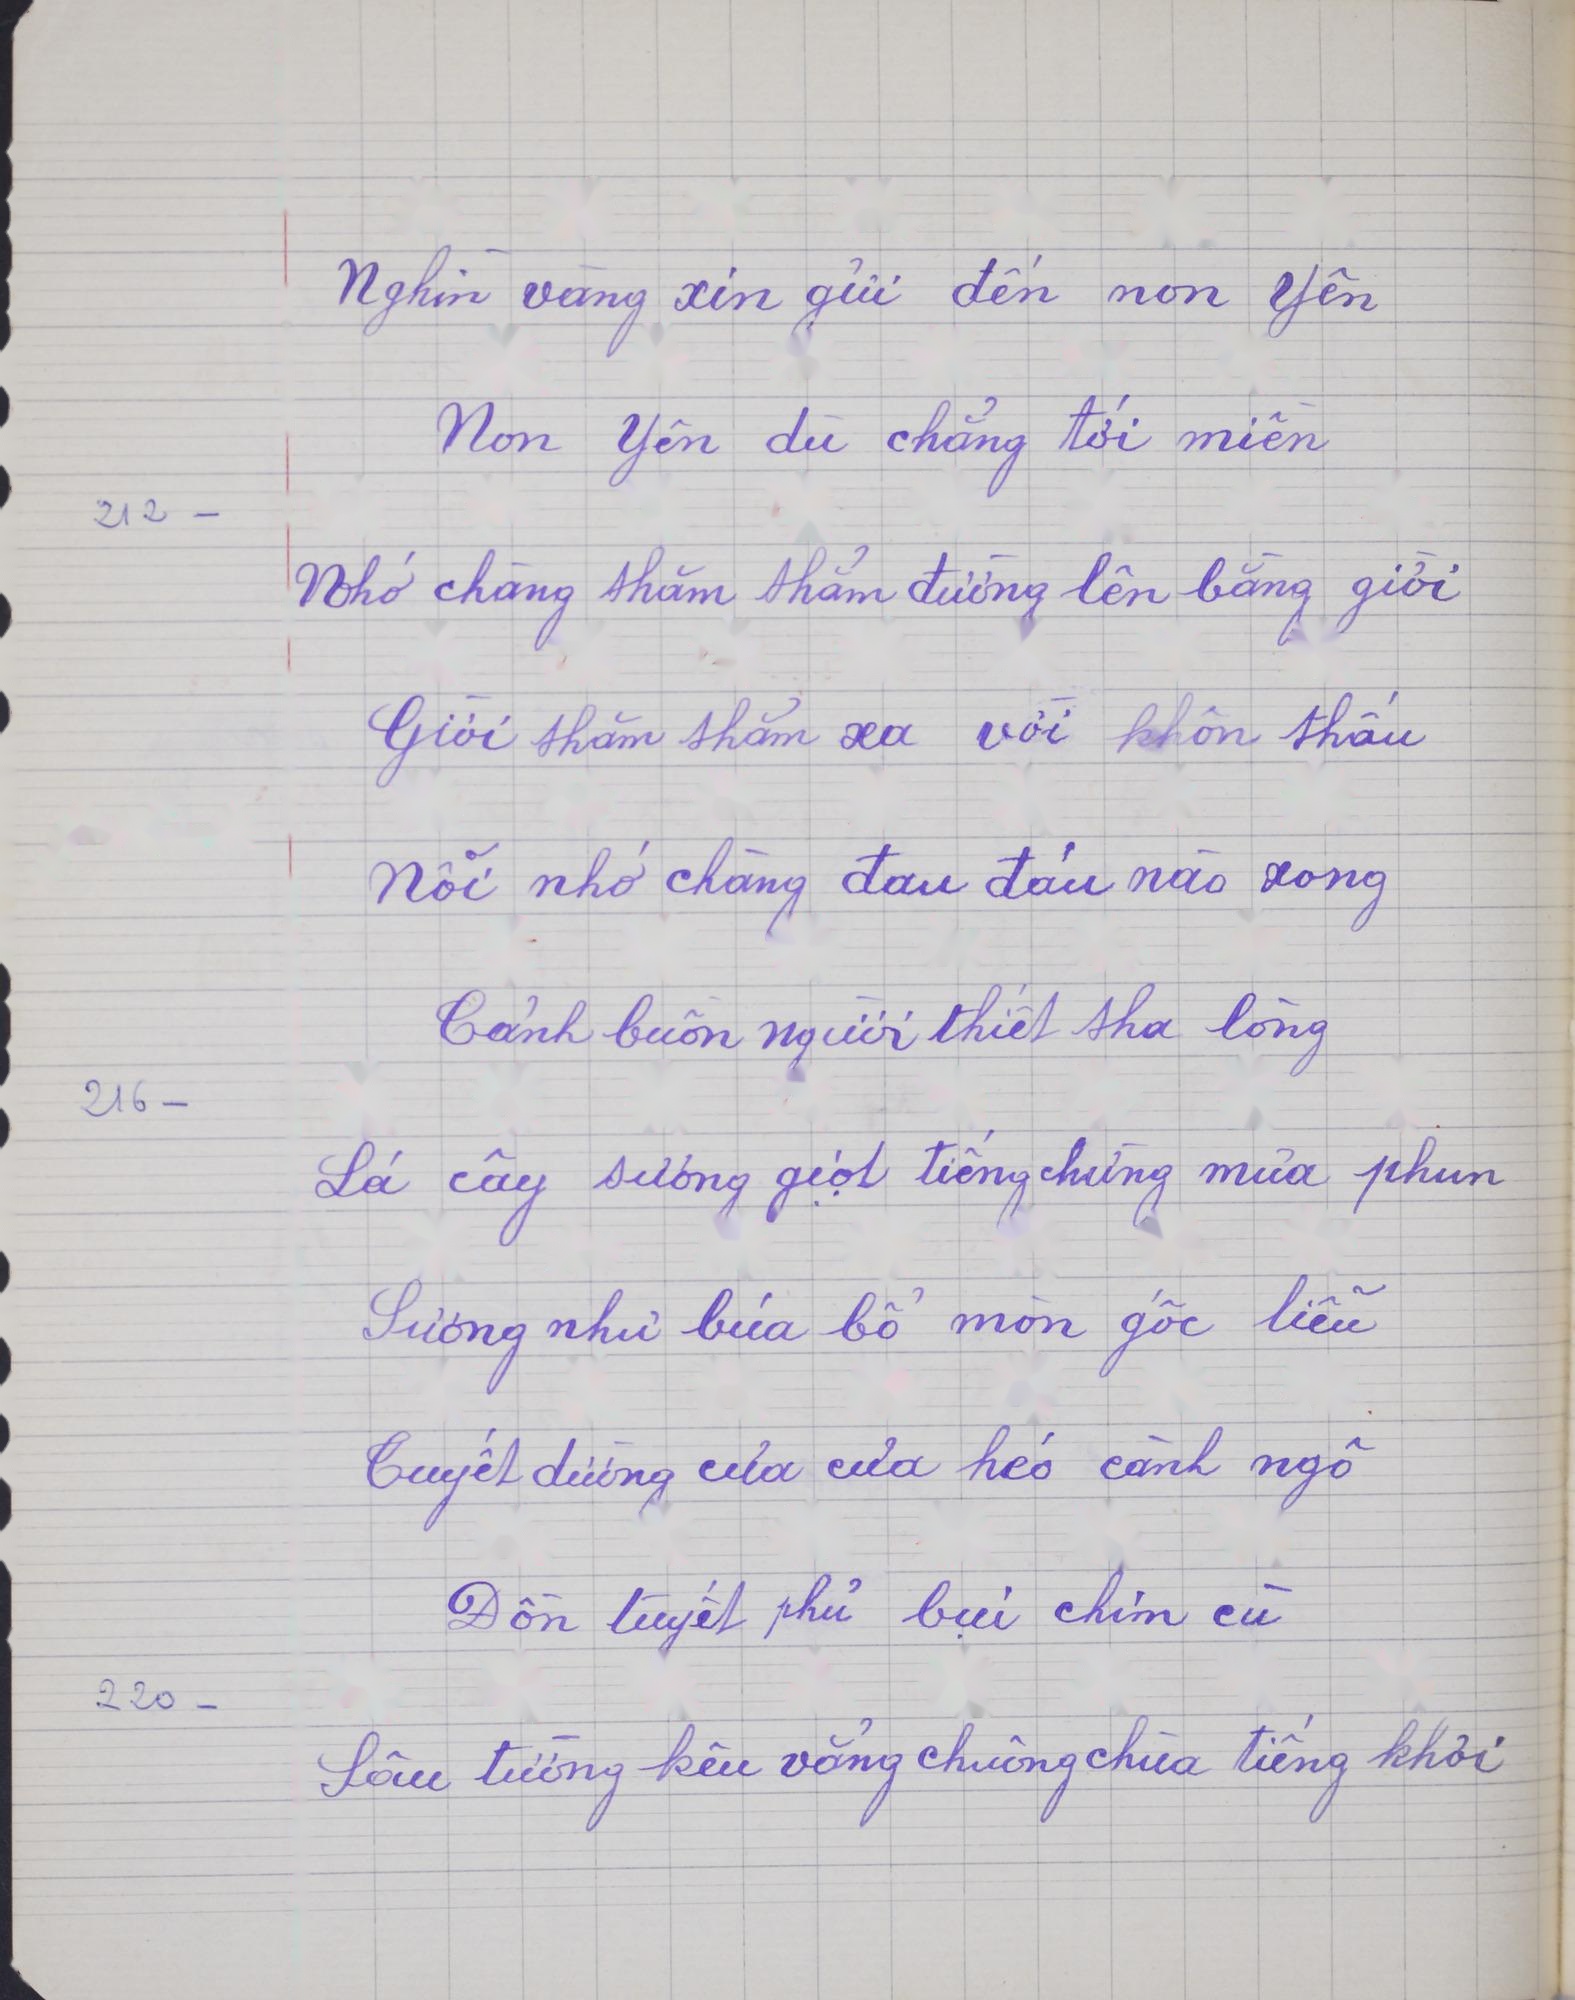 Nghìn vàng xin gửi đến non Yên
Non Yên dù chẳng tới miền
212 -
Nhớ chàng thăm thẳm đường lên bằng giời
Giời thăm thẳm xa vời khôn thấu
Nỗi nhớ chàng đau đáu nào xong
Cảnh buồn người thiết tha lòng
216 -
Lá cây sương giọt tiếng chừng mưa phun
Sương như búa bổ mòn gốc liễu
Tuyết dường cưa cưa héo cành ngô
Dồn tuyết phủ bụi chim cù
220 -
Sâu tường kêu vẳng chuông chùa tiếng khơi